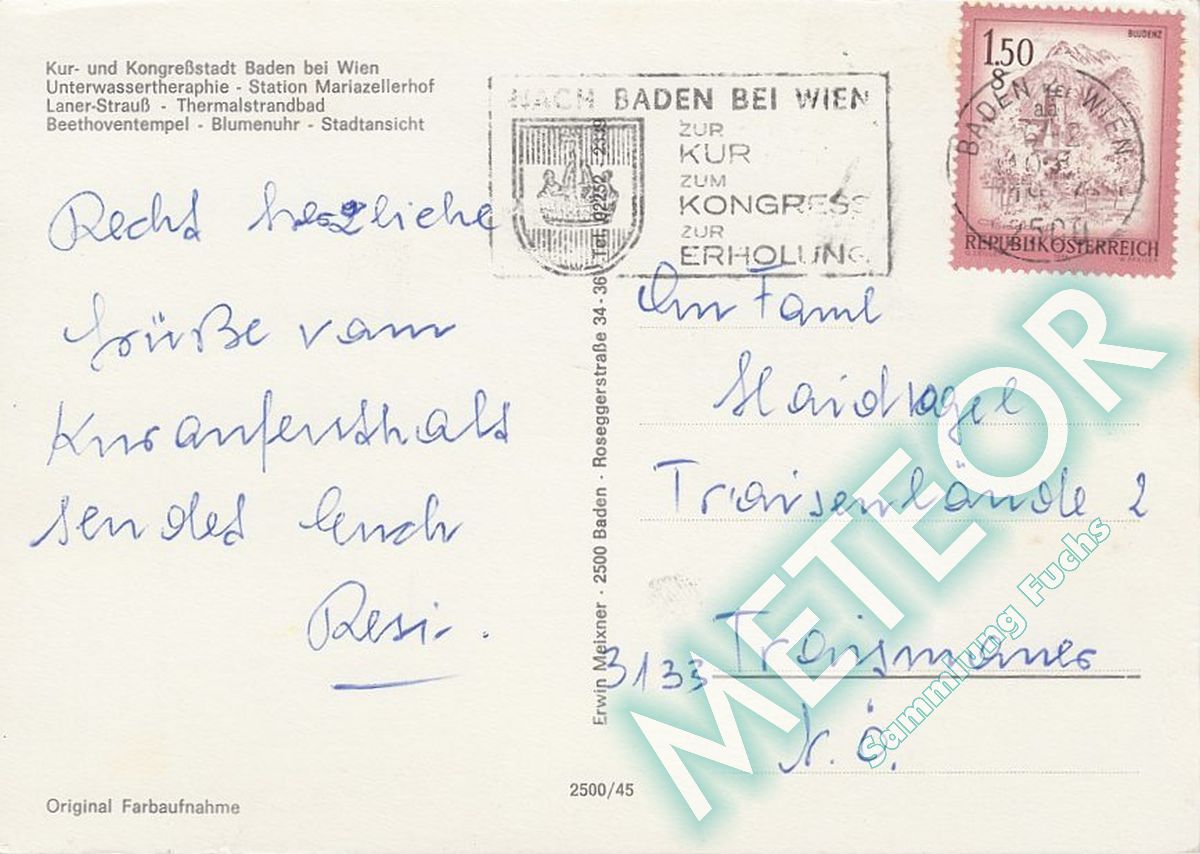 Kur- und Kongreßstadt Baden bei Wien
Unterwassertheraphie - Station Mariazellerhof
Laner-Strauß - Thermalstrandbad
Beethoventempel - Blumenuhr - Stadtansicht
Recht herzliche
Grüße vom
Kuraufenthalt
sendet Euch
Resi.
Original Farbaufnahme
NACH BADEN BEI WIEN
ZUR
KUR
ZUM
KONGRESS
ZUR
ERHOLUNG
1.50
S
BLUDENZ
REPUBLIK ÖSTERREICH
BADEN BEI WIEN
2500
Erwin Meixner · 2500 Baden · Roseggerstraße 34 - 36 Tel. 02252 - 2339
An Faml
Haidvogel
Traisenlände 2
3133 Traismauer
N.Ö.
2500/45
METEOR
Sammlung Fuchs